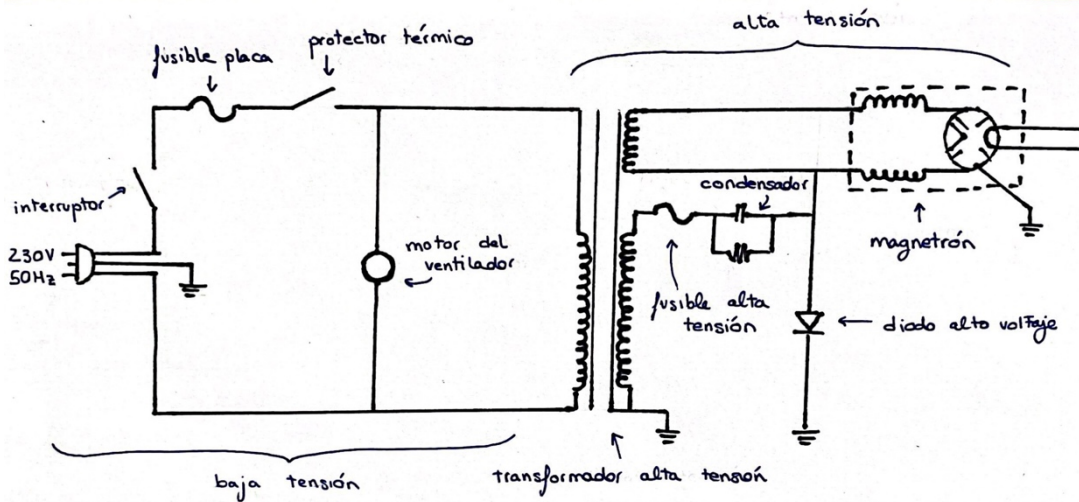 alta tensión
protector térmico
fusible placa
interruptor
230V
50Hz
motor del
ventilador
condensador
magnetrón
fusible alta
tensión
diodo alto voltaje
baja tensión
transformador alta tensión